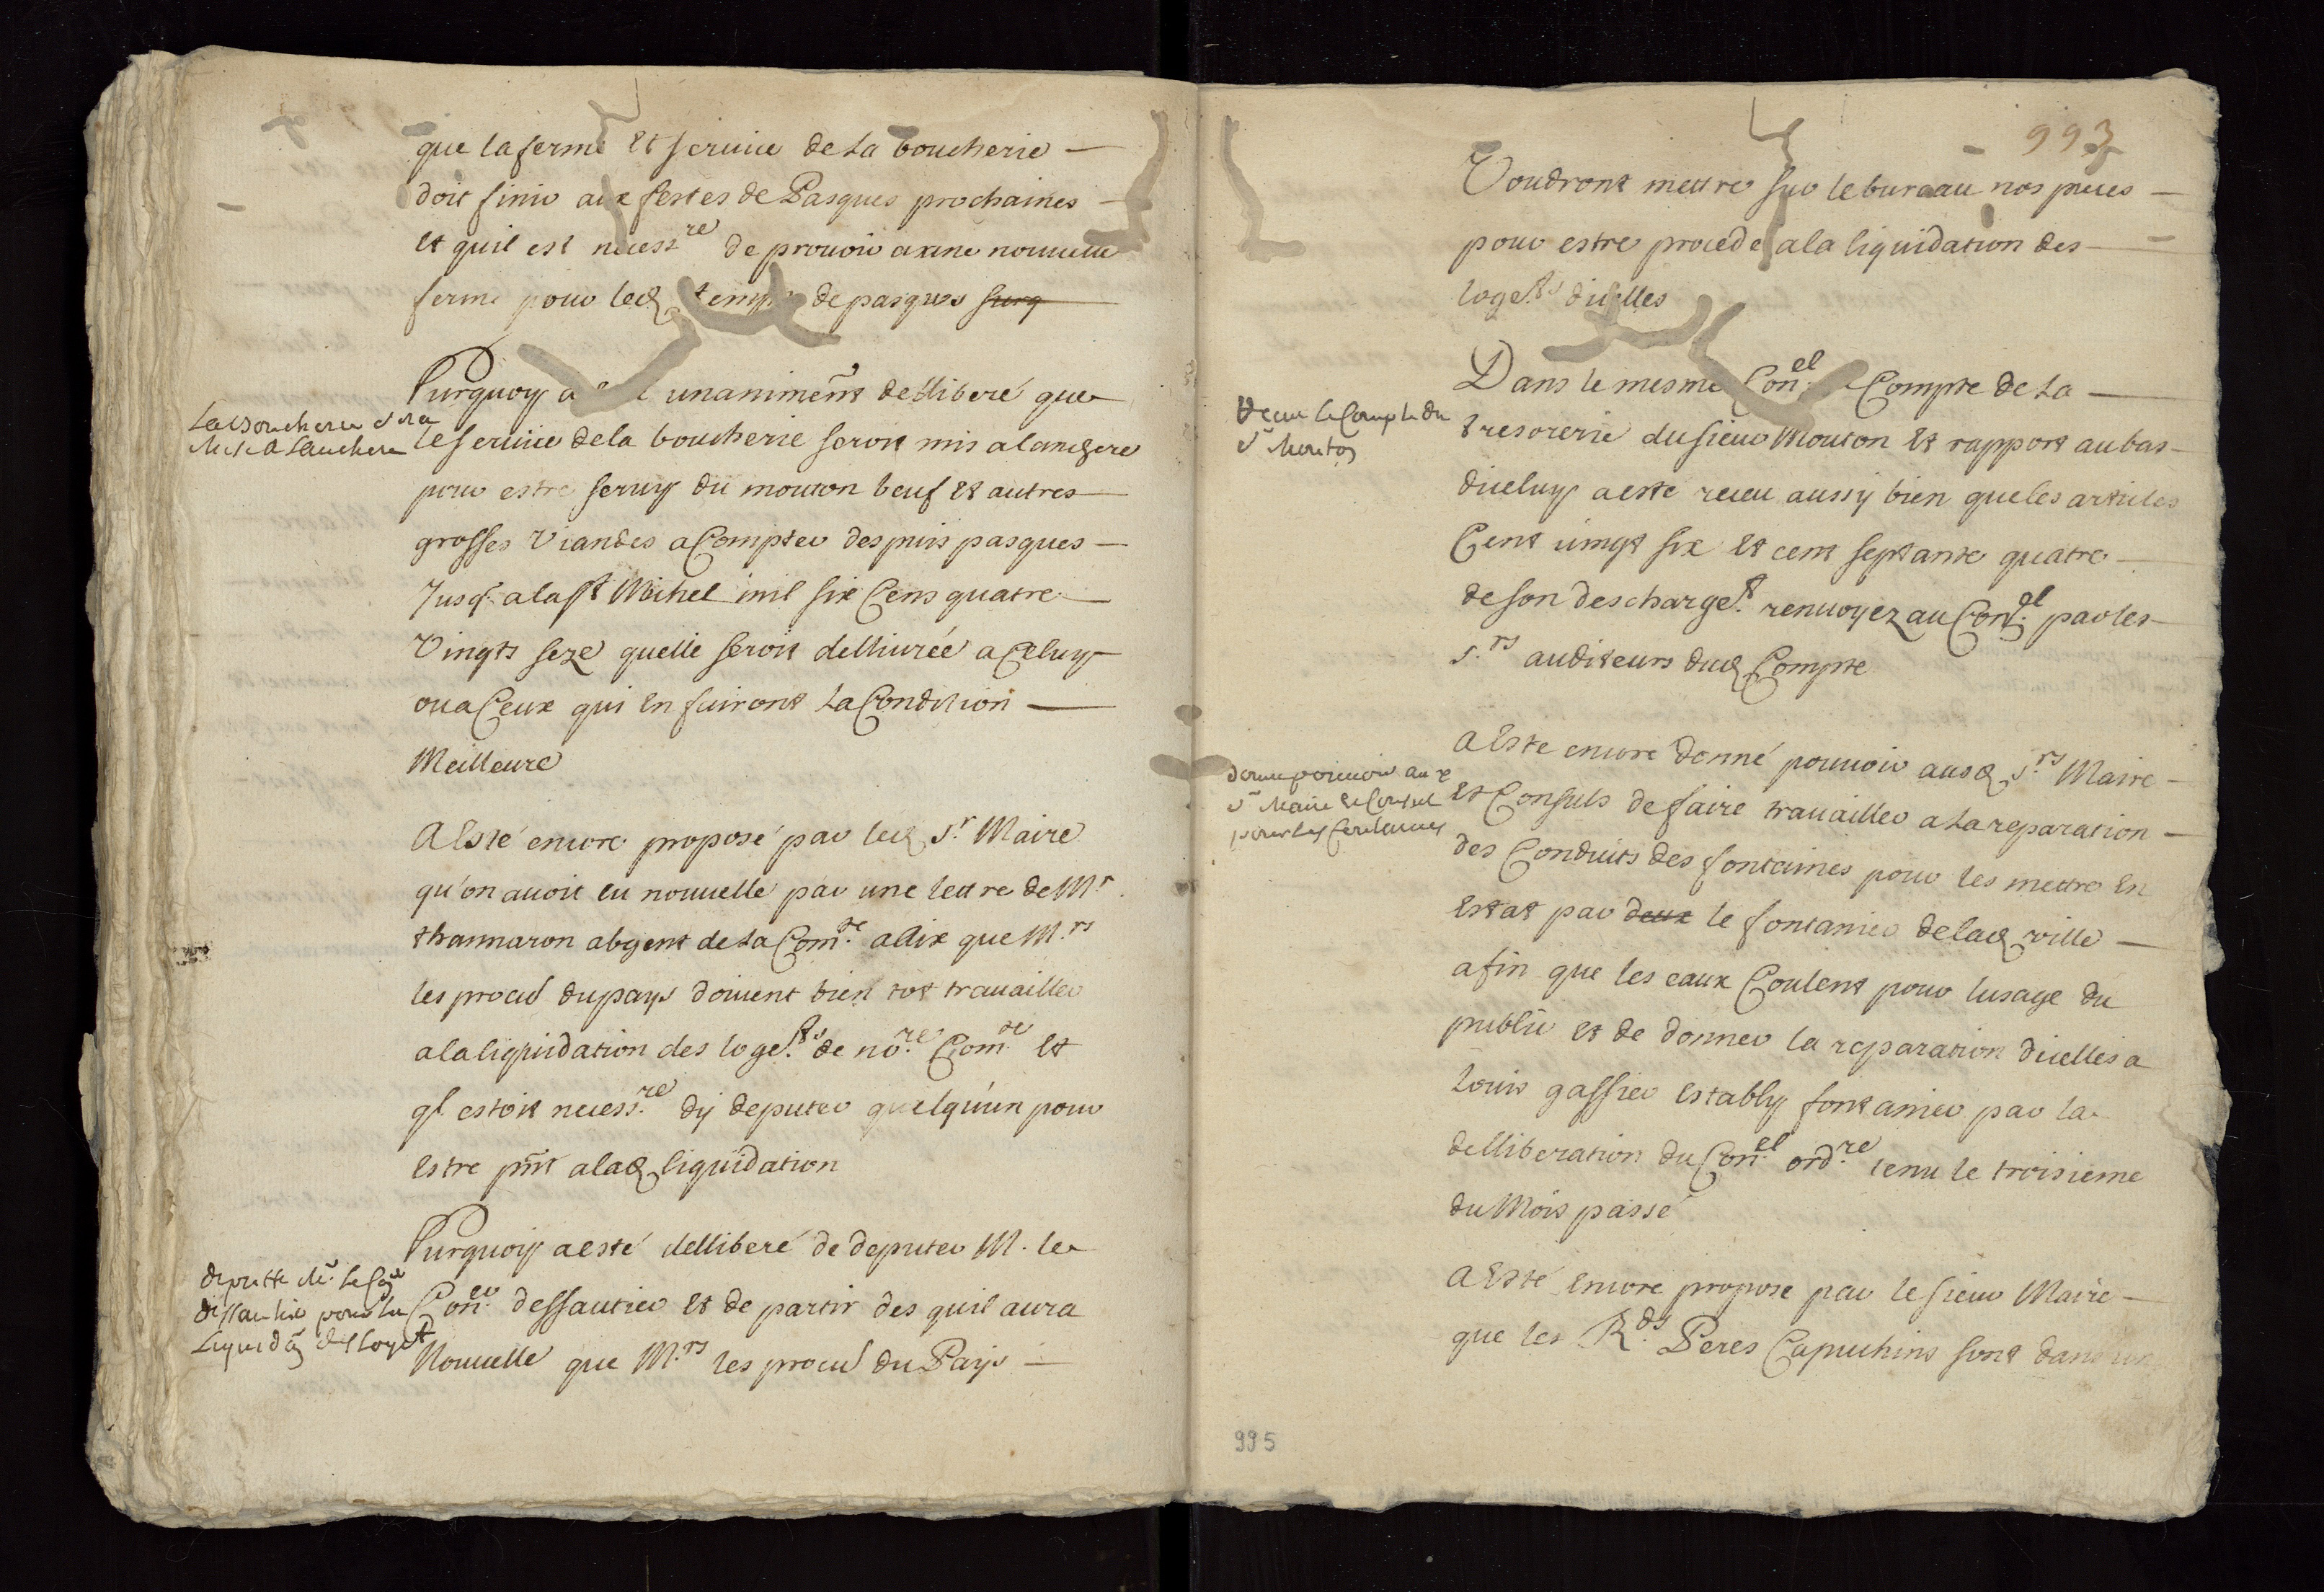 que la ferme et seruice de la boucherie
doit finir aux festes de Pasques prochaines
et quil est necess.re de prouoir a une nouuelle
ferme pour led temps de pasques surq
Purquoy a unanimem̃t delliberé que
La Boucherie sera
mise a lenchere
le seruice de la boucherie seroit mis a lanchere
pour estre seruy du mouton beuf et autres
grosses Viandes a Compter despuis pasques
Jusq. a la st Michel mil six Cens quatre
Vingts seze quelle seroit delliurée a Celuy
ou a Ceux qui en fairont la Condition
Meilleure
A Esté encore proposé par led s.r Maire
qu'on auoit eu nouuelle par une lettre de M.r
thannaron abgent de la Com.te a Aix que M.rs
les procurs du pays doiuent bien tot trauailler
a la liquidation des loge.ts de no.re Com.te et
ql estoit necess.re dy deputer quelqu'un pour
estre pn̄t a lad liquidation
Purquoy a esté delliberé de deputer M. le
deputte Mr. le
dissautier pour la
Liquida͠on des loget
Con.er dessautier et de partir des quil aura
Nouuelle que M.rs les procurs du Pays
993
Voudront mettre sur le bureau nos pieces
pour estre procedé a la liquidation des
loge.ts dicelles
Dans le mesme Con.el Compte de la
Receu le Compte du
sr Mouton
tresorerie du sieur Mouton et rapport au bas
diceluy a esté receu aussy bien que les articles
Cent uingt six et cent septante quatre
de son descharge.t renuoyez au Con.el par les
s.rs auditeurs dud Compte
A Esté encore donné pouuoir ausd s.rs Maire
Donne pouuoir aux
srs Maire et Consuls
pour les fontaines
et Consuls de faire trauailler a la reparation
des Conduits des fontaines pour les mettre en
estat par deux le fontanier de lad ville
afin que les eaux Coulent pour lusage du
public et de donner la reparation dicelles a
Louis gassier estably fontanier par la
delliberation du Con.el ord.re tenu le troisieme
du Mois passé
A Esté encore proposé par le sieur Maire
que les R.ds Peres Capuchins sont dans un
995